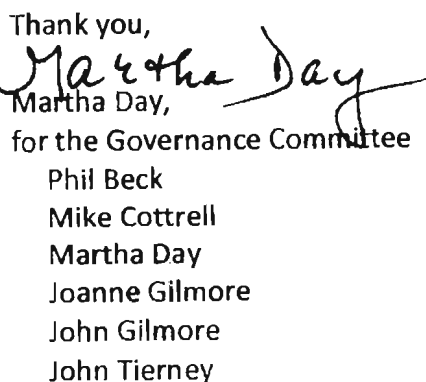 Thank you,
Martha Day
Martha Day,
for the Governance Committee
Phil Beck
Mike Cottrell
Martha Day
Joanne Gilmore
John Gilmore
John Tierney